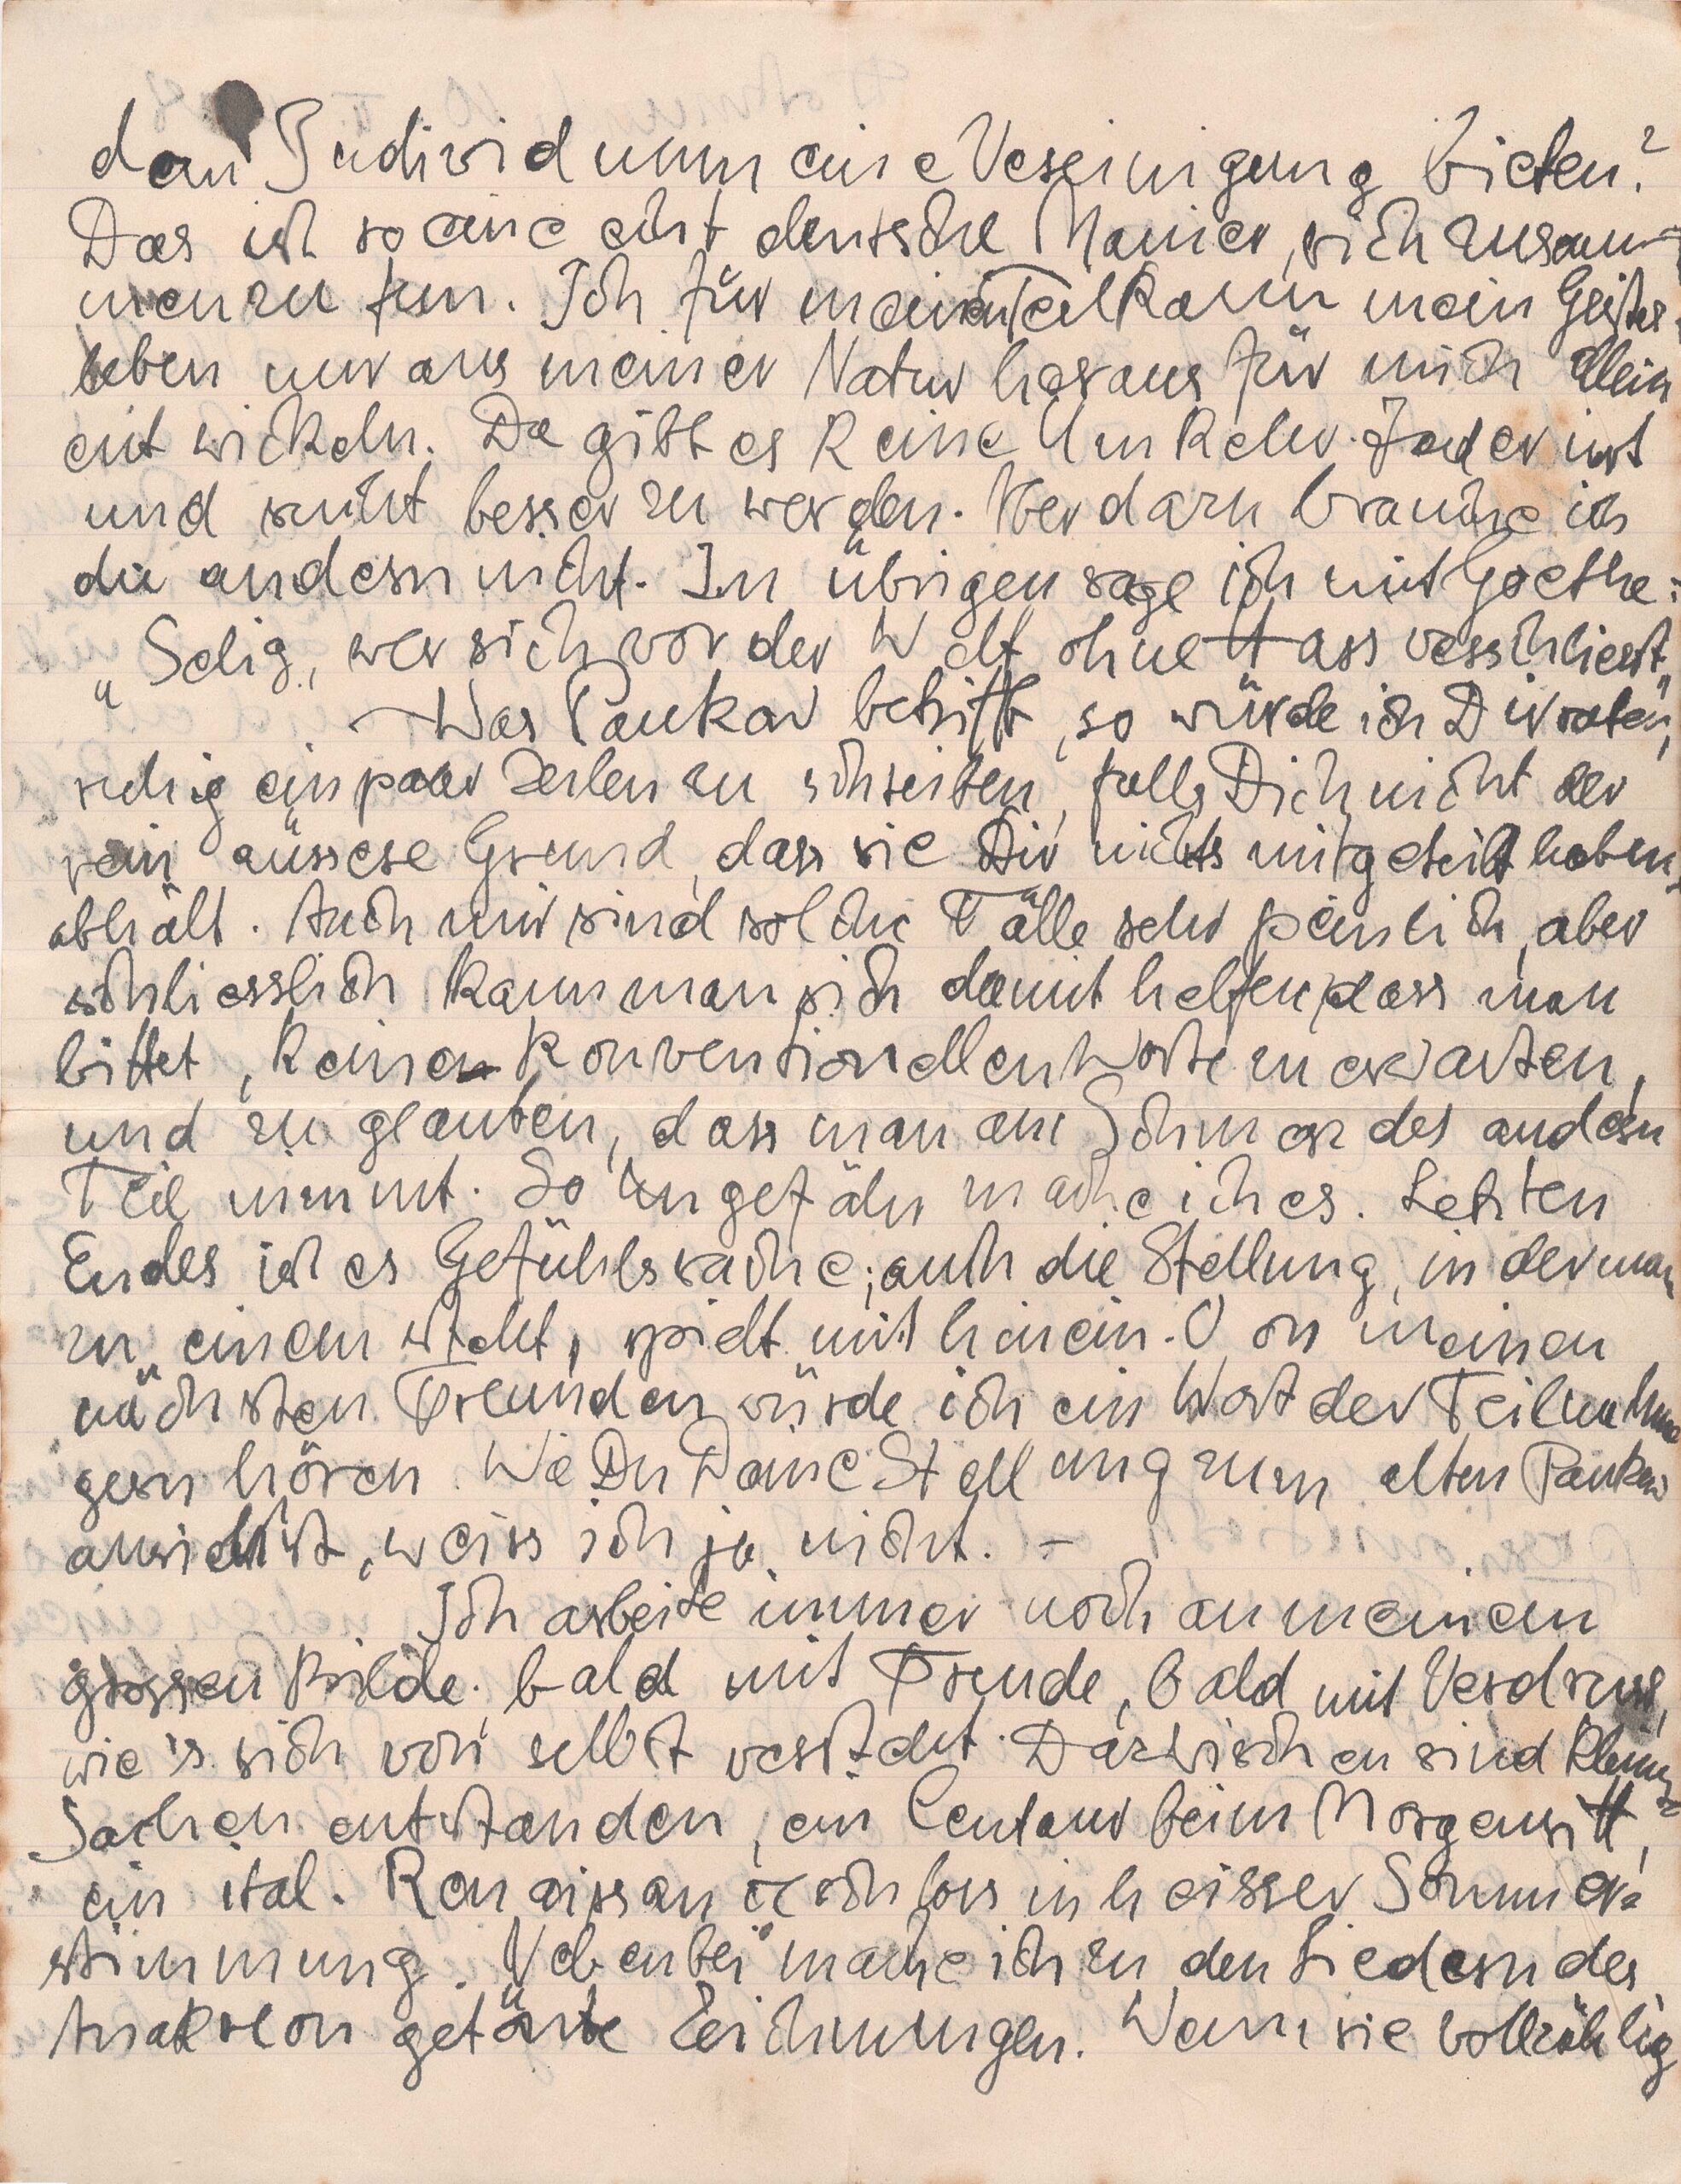 dem Individuum eine Vereinigung bieten?
Das ist so eine echt deutsche Manier, sich zusam-
menzu tun. Ich für meinen Teil kann mein Geistes-
leben nur aus meiner Natur heraus für mich allein
entwickeln. Da gibt es keine Umkehr. Jeder irrt
und sucht besser zu werden. Aber dazu brauche ich
die andern nicht. Im übrigen sage ich mit Goethe:
„Selig, wer sich vor der Welt ohne Hass verschliesst."
– Was Pankow betrifft, so würde ich Dir raten,
ruhig ein paar Zeilen zu schreiben, falls Dich nicht der
rein äussere Grund, dass sie Dir nichts mitgeteilt haben,
abhält. Auch mir sind solche Fälle sehr peinlich, aber
schliesslich kann man sich damit helfen, dass man
bittet, keine konventionellen Worte zu erwarten,
und zu glauben, dass man am Schmerz des andern
Teil nimmt. So ungefähr mache ich es. Letzten
Endes ist es Gefühlssache; auch die Stellung, in der man
zu einem steht, spielt mit hinein. Von meinen
nächsten Freunden würde ich ein Wort der Teilnahme
gern hören. Wie Du Deine Stellung zum alten Pankow
ansiehst, weiss ich ja nicht. –
Ich arbeite immer noch an meinem
grossen Bilde, bald mit Freude, bald mit Verdruss,
wie's sich von selbst versteht. Dazwischen sind kleine
Sachen entstanden, ein Centaur beim Morgenritt,
ein ital. Renaissanceschloss in heisser Sommer-
stimmung. Nebenbei mache ich zu den Liedern des
Anakreon getönte Zeichnungen. Wenn sie vollzählig